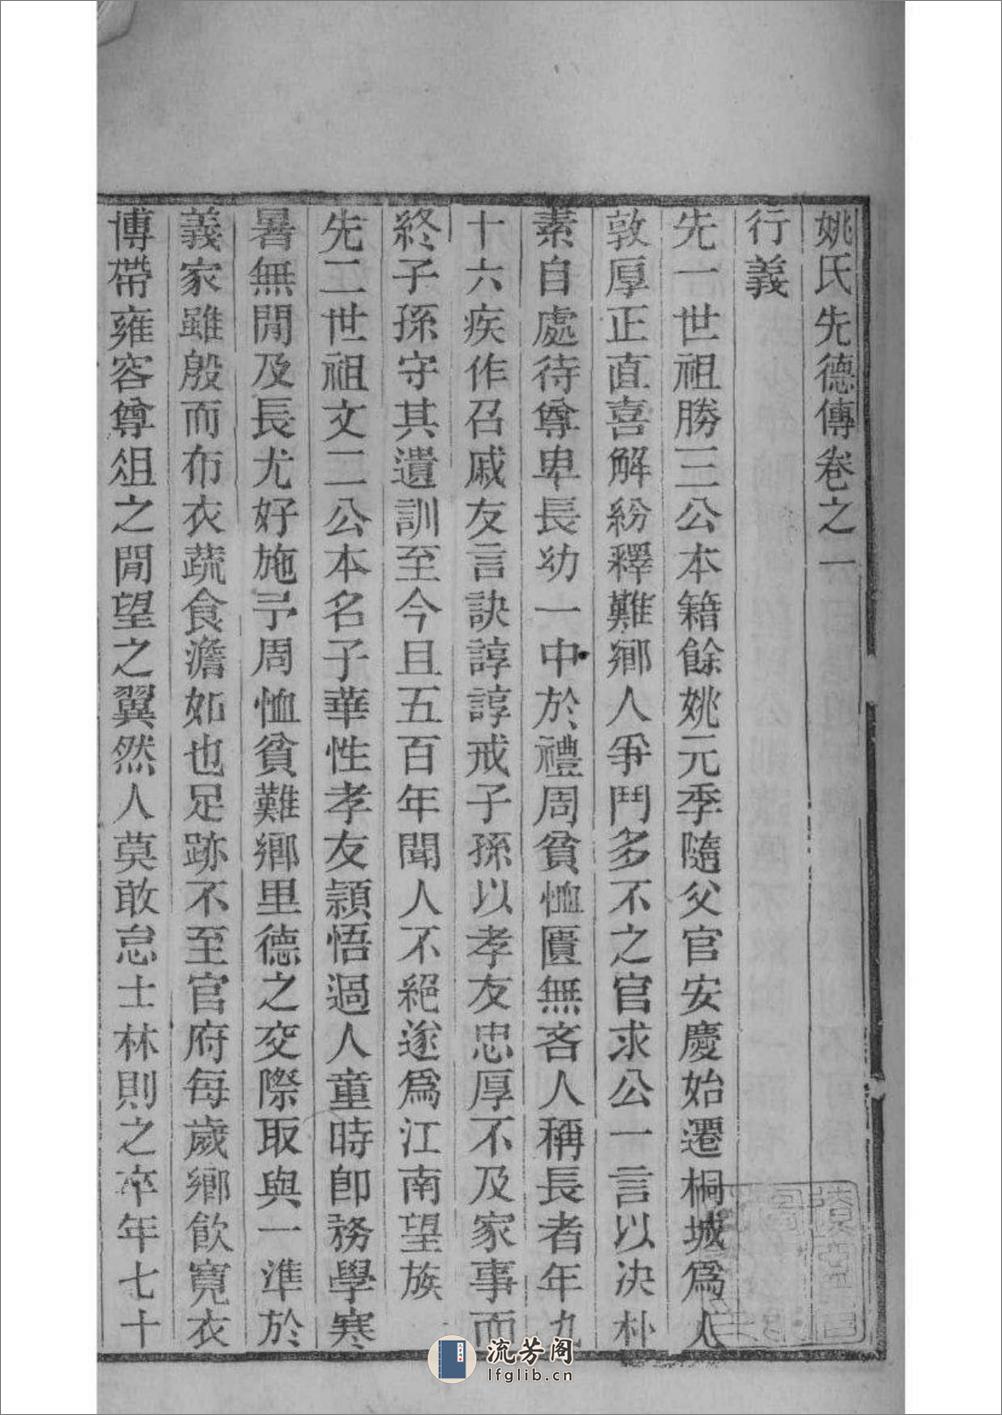 姚氏先德傳卷之一
行義
先一世祖勝三公本籍餘姚元季隨父官安慶始遷桐城爲人
敦厚正直喜解紛釋難鄉人爭鬥多不之官求公一言以决朴
素自處待尊卑長幼一中於禮周貧恤匱無吝人稱長者年九
十六疾作召戚友言訣諄諄戒子孫以孝友忠厚不及家事而
終子孫守其遺訓至今且五百年聞人不絕遂爲江南望族
先二世祖文二公本名子華性孝友頴悟過人童時卽務學寒
暑無閒及長尤好施予周恤貧難鄉里德之交際取與一準於
義家雖殷而布衣蔬食澹如也足跡不至官府每歲鄉飲寬衣
博帶雍容尊俎之閒望之翼然人莫敢怠士林則之卒年七十
流芳阁
lfglib.cn